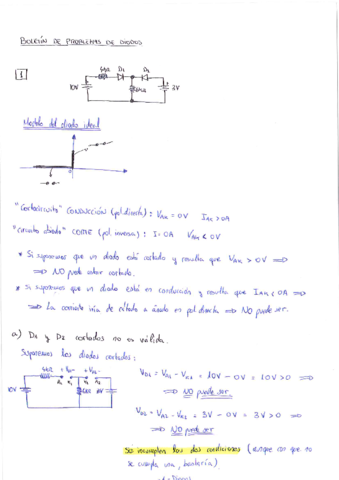 BOLETÍN DE PROBLEMAS DE DIODOS
1
D1 D2
10V 3V
Modelo del diodo ideal
"Cortocircuito" CONDUCCIÓN (pol. directa): VAK = 0V IAK > 0A
"Circuito abierto" CORTE (pol. inversa): I = 0A VAK < 0V
* Si suponemos que un diodo está cortado y resulta que VAK > 0V ⟹
⟹ NO puede estar cortado.
* Si suponemos que un diodo está en conducción y resulta que IAK < 0A ⟹
⟹ La corriente iría de cátodo a ánodo en pol. directa ⟹ NO puede ser.
a) D1 y D2 cortados no es válida.
Suponemos los diodos cortados:
10V
VD1 = VA1 - VK1 = 10V - 0V = 10V > 0 ⟹
⟹ NO puede ser.
VD2 = VA2 - VK2 = 3V - 0V = 3V > 0 ⟹
⟹ NO puede ser.
Se incumplen las dos condiciones (aunque con que no
se cumpla una, bastaría)